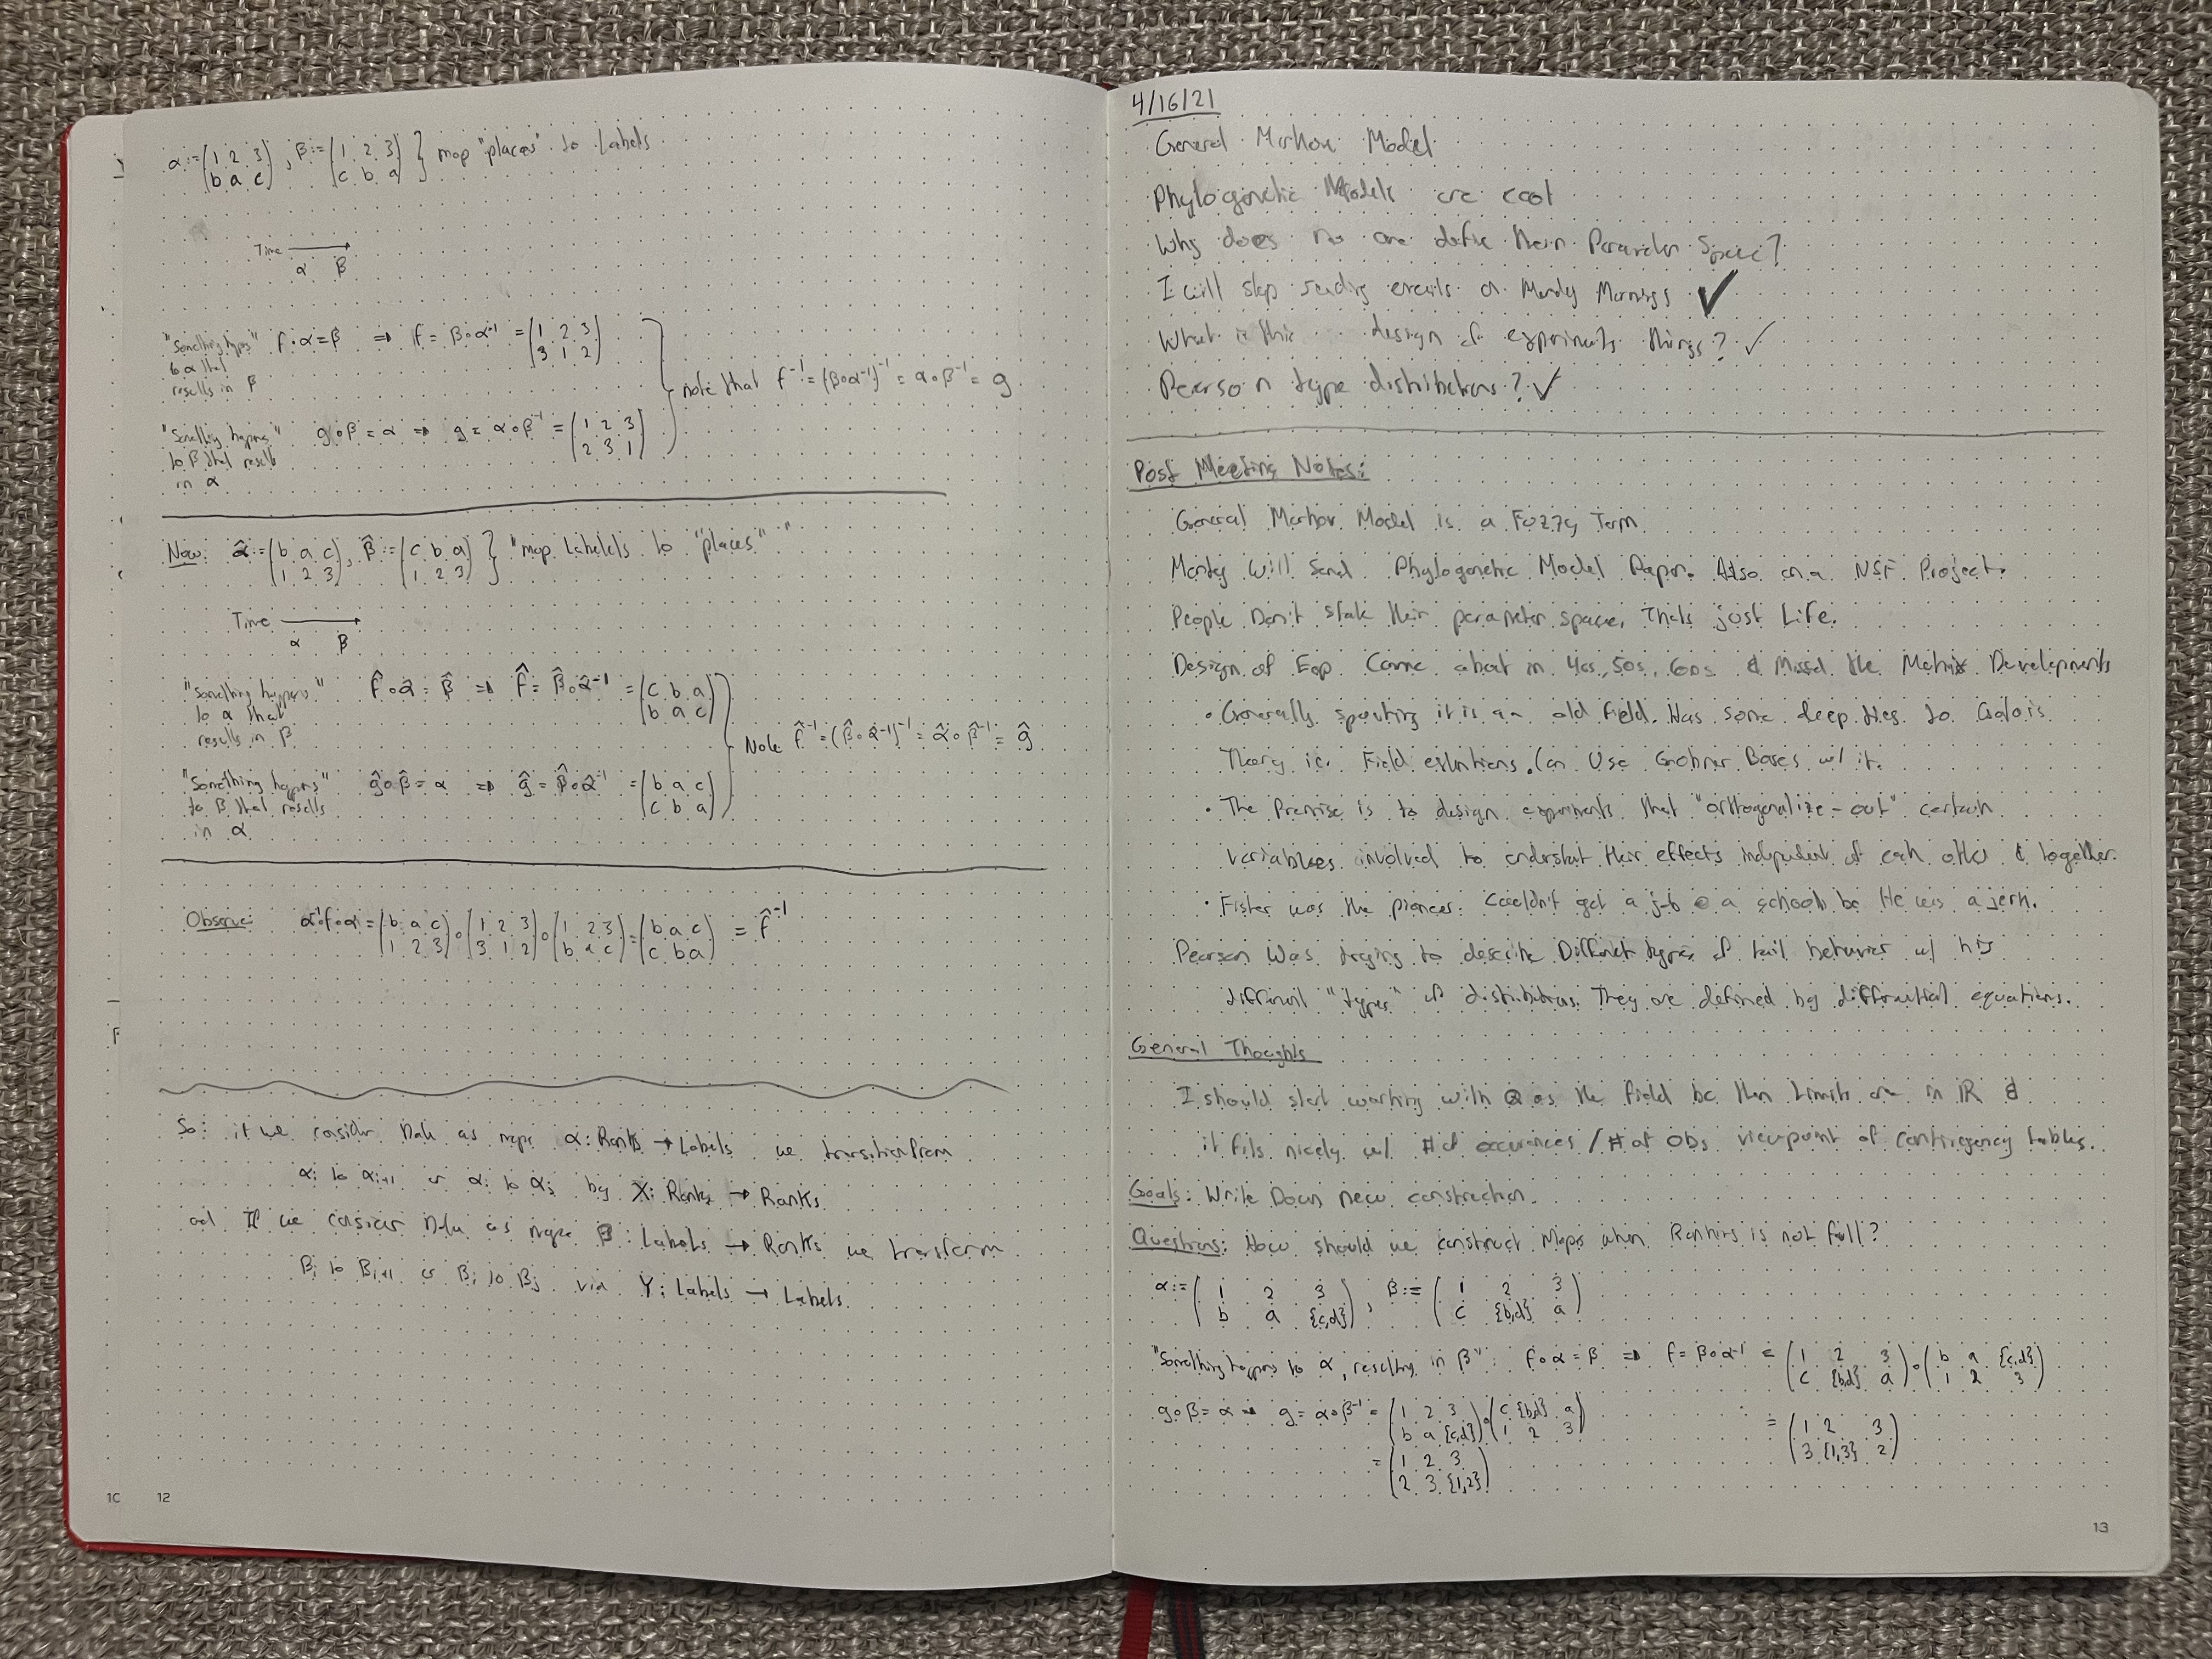 α := (1 2 3 / b a c), β := (1 2 3 / c b a) } map "places" to labels
Time →
α β
"something happens" to α that results in β
f∘α = β ⇒ f = β∘α⁻¹ = (1 2 3 / 3 1 2)
"something happens" to β that results in α
g∘β = α ⇒ g = α∘β⁻¹ = (1 2 3 / 2 3 1)
note that f⁻¹ = (β∘α⁻¹)⁻¹ = α∘β⁻¹ = g
Now: α̂ := (b a c / 1 2 3), β̂ := (c b a / 1 2 3) } "map labels to "places""
Time →
α β
"something happens" to α that results in β
f̂∘α̂ = β̂ ⇒ f̂ = β̂∘α̂⁻¹ = (c b a / b a c)
"something happens" to β that results in α
ĝ∘β̂ = α ⇒ ĝ = β̂∘α̂⁻¹ = (b a c / c b a)
Note f̂⁻¹ = (β̂∘α̂⁻¹)⁻¹ = α̂∘β̂⁻¹ = ĝ
Observe: α⁻¹∘f∘α = (b a c / 1 2 3)∘(1 2 3 / 3 1 2)∘(1 2 3 / b a c) = (b a c / c b a) = f̂⁻¹
So: if we consider data as maps α: Ranks → Labels we transition from
αᵢ to αᵢ₊₁ or αᵢ to αⱼ by X: Ranks → Ranks.
and if we consider data as maps β: Labels → Ranks we transform
βᵢ to βᵢ₊₁ or βᵢ to βⱼ via Y: Labels → Labels
10
12
4/16/21
General Markov Model
Phylogenetic Models are cool
Why does no one define their Parameter Space?
I will stop sending emails on Monday Mornings ✓
What is this design of experiments things? ✓
Pearson type distributions? ✓
Post Meeting Notes:
General Markov Model is a Fuzzy Term
Monty will send Phylogenetic Model Paper. Also on a NSF Project.
People Don't state their parameter space, That's just Life.
Design of Exp Came about in 40s, 50s, 60s & missed the Matrix Developments
• Generally speaking it is an old field. Has some deep ties to Galois
Theory ie. Field extentions. Can Use Grobner Bases w/ it.
• The Premise is to design experiments that "orthogonalize-out" certain
variables involved to understand their effects independent of each other & together.
• Fisher was the pioneer: Couldn't get a job @ a school bc He was a jerk.
Pearson Was trying to describe Different Degrees of tail behavior w/ his
different "types" of distributions. They are defined by differential equations.
General Thoughts
I should start working with ℚ as the field bc then Limits are in ℝ &
it fits nicely w/ # of occurences / # of obs viewpoint of Contingency tables.
Goals: Write Down new construction.
Questions: How should we construct Maps when Ranking is not full?
α := (1 2 3 / b a {c,d}), β := (1 2 3 / c {b,d} a)
"Something happens to α, resulting in β": f∘α = β ⇒ f = β∘α⁻¹ = (1 2 3 / c {b,d} a)∘(b a {c,d} / 1 2 3)
= (1 2 3 / 3 {1,3} 2)
g∘β = α ⇒ g = α∘β⁻¹ = (1 2 3 / b a {c,d})∘(c {b,d} a / 1 2 3)
= (1 2 3 / 2 3 {1,2})
13